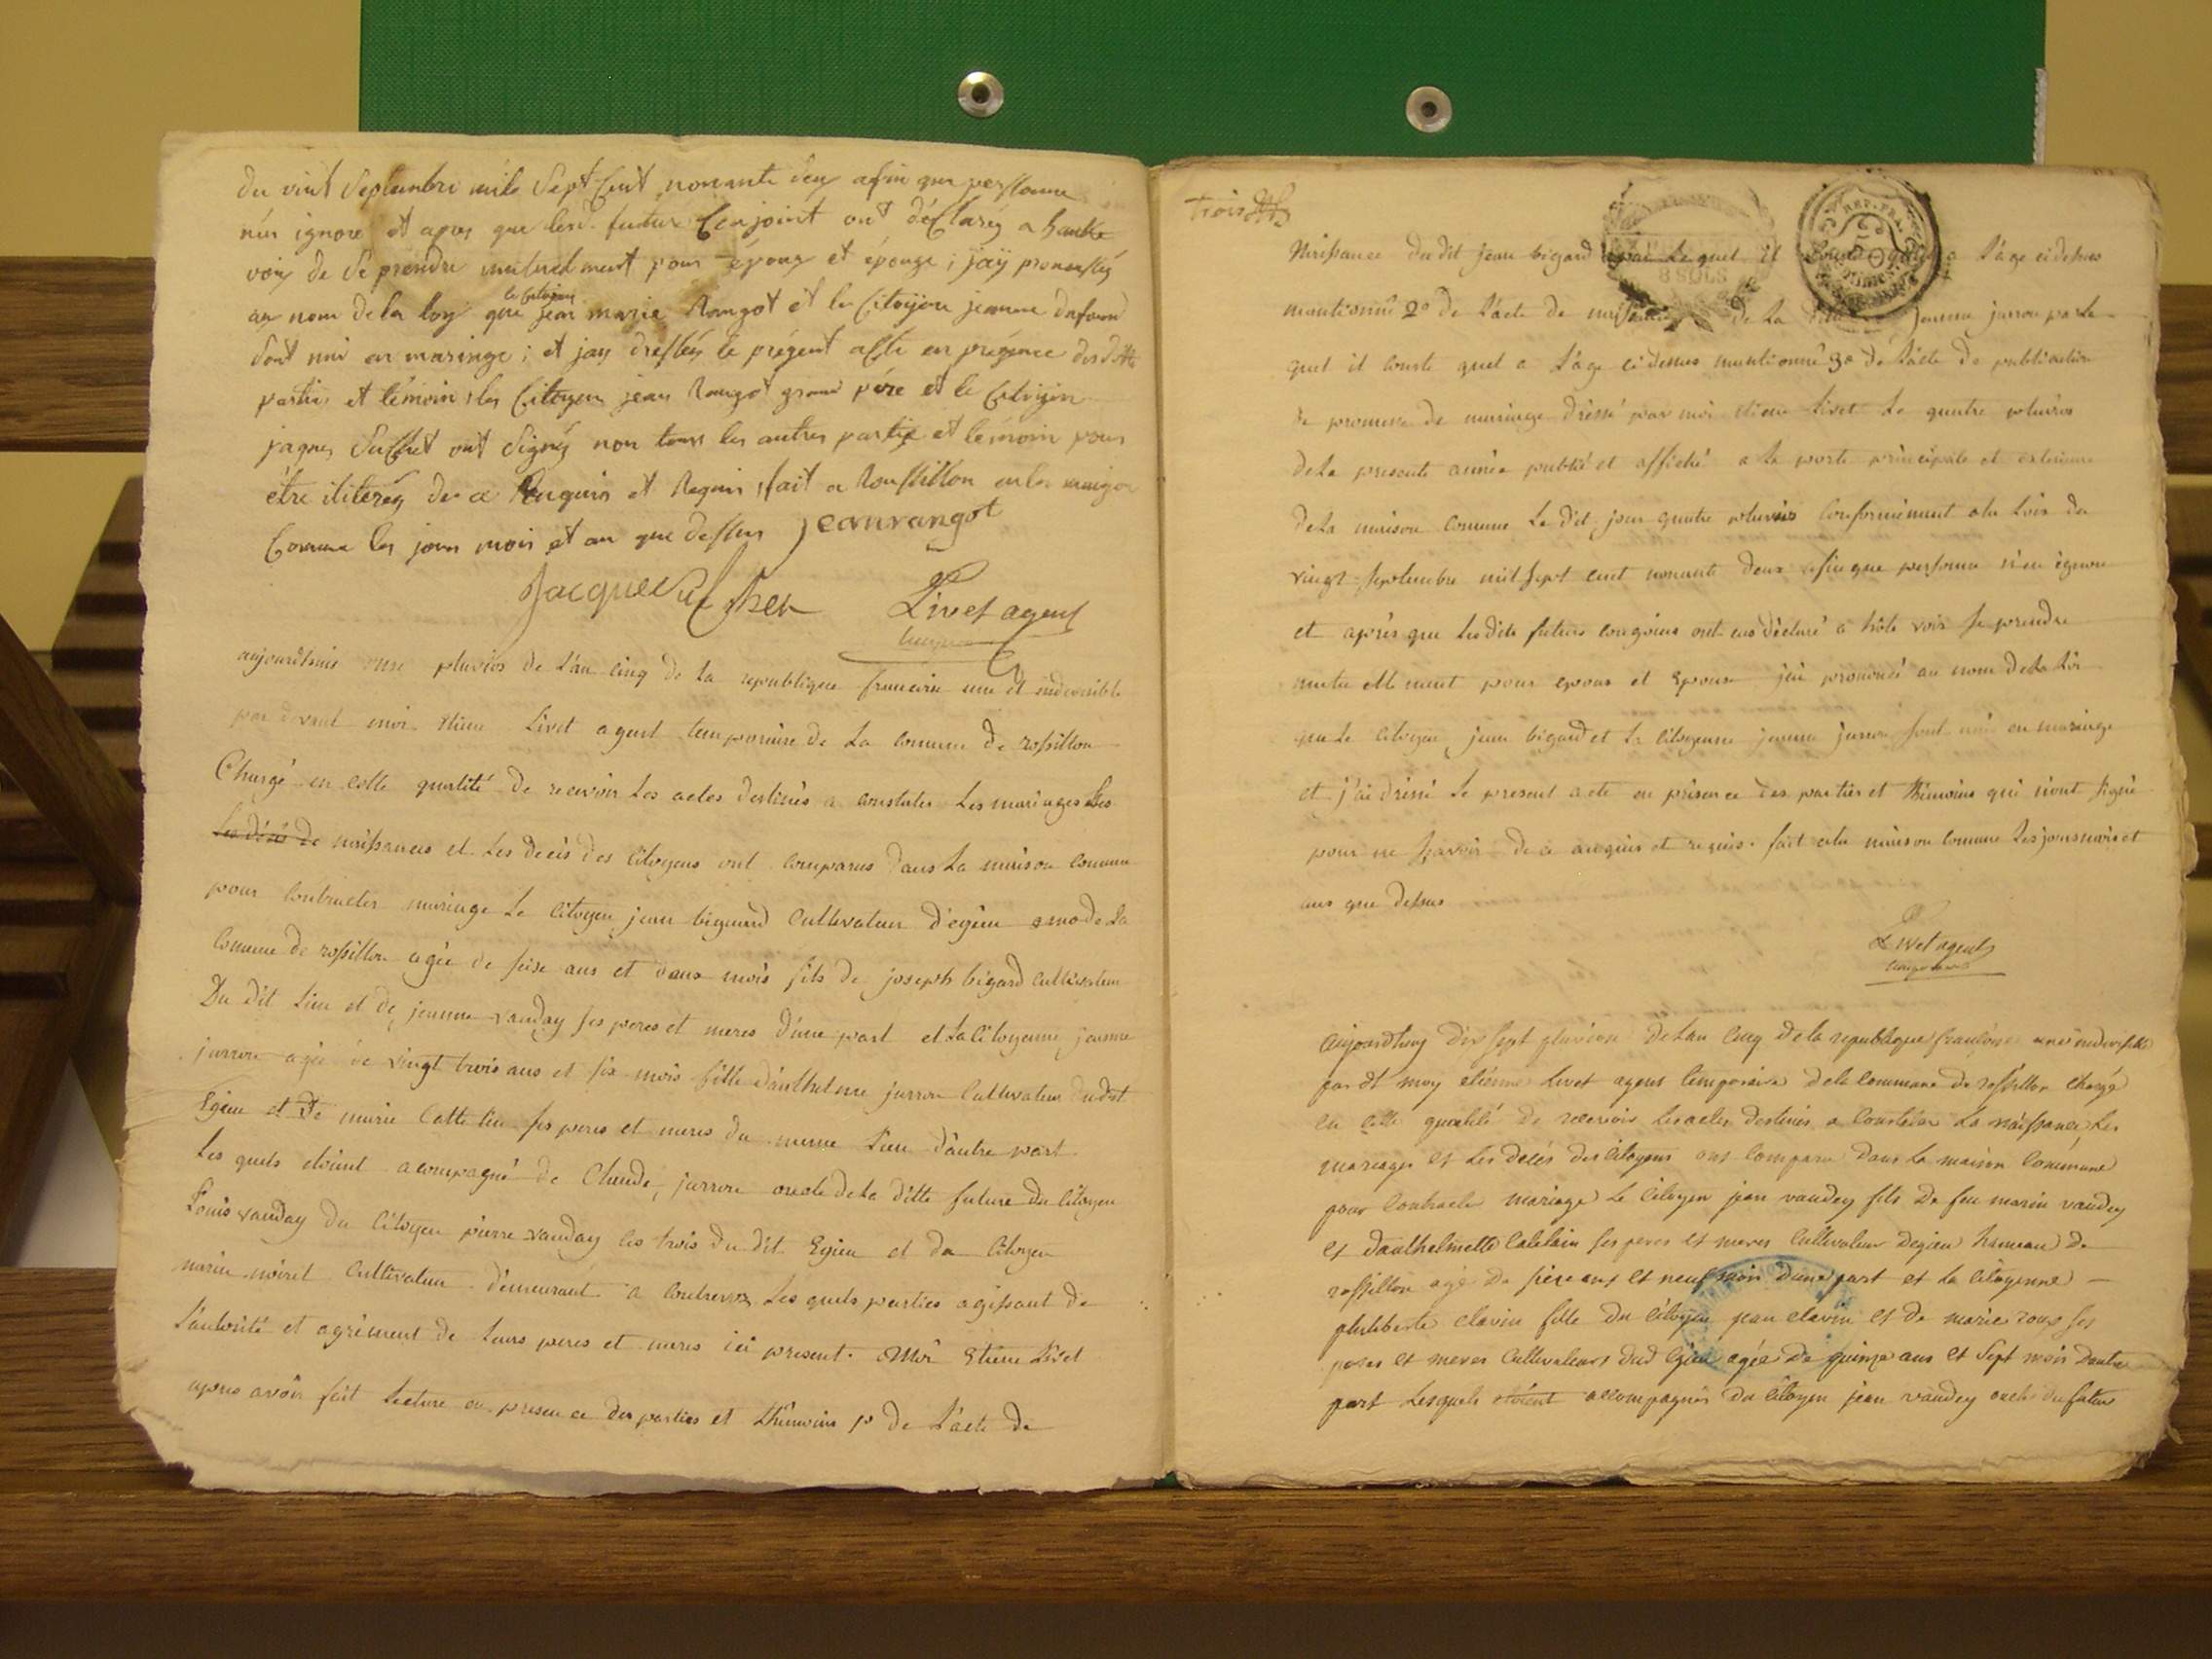 du vint Septembre mile Sept Cent nonante deux afin que perssonne
n'en ignore et apres que lesd. futur Conjoint ont déClaréz a haulte
voix de Se prendre mutuelment pour époux et épouze ; jaÿ prononssés
au nom de la loy que le Citoÿen jean marie Rangot et la Citoÿene jeanne
Sont uni en mariage ; et jay dressés le prégent aste en prégence des dtte
partie et témoin ; les Citoyen jean Rangot grand père et le Citoyin
jaques Suffret ont Signéz non tous les autres partie et témoin pour
être iliteréz de ce Enquis et Requis ; fait a Roussillon en la maizon
Comune les jour mois et an que dessus jeanrangot
Jacque
Livet agent
aujourdhuie onze pluvios de L'an Cinq de La republique francoise une et indivisible
par devant moi Etiene Livet agent temporaire de La Comune de rossillon
Chargé en cette qualité de recevoir Les actes destinés a constater Les mariages Les
Les décés de naissances et Les decés des Citoyens ont comparus dans La maison Comune
pour Contracter mariage Le Citoyen jean bigaurd Cultivateur d'egieu amo de La
Comune de rossillon agée de seise ans et deux mois fils de joseph bigard Cultivateur
Du dit Lieu et de jeanne vauday ses peres et meres d'une part et La Citoyenne jeanne
jurron agée de vingt trois ans et six mois fille d'anthelme jurron Cultivateur dudit
Egieu et De marie Cattelin ses peres et meres du meme Lieu d'autre part
Les quels etoient acompagné de Claude jurron oncle de La ditte future du Citoyen
Louis vauday du Citoyen pierre vauday les trois du dit Egieu et du Citoyen
marin noiret Cultivateur demeurant a Contrevoz Les quels parties agissant de
L'autorité et agrément de Leurs peres et meres ici present. Moi Etiene Livet
apres avoir fait Lecture en presence des parties et thémoins 1o de L'acte de
Trois
Naissance du dit jean bigard par Le quel il conste quil a L'age ci dessus
8 SOLS
REP. FRA.
mantionné 2o de L'acte de naissance de La jeanne jurron par Le
quel il conste quel a L'age ci dessus mantionné 3o de L'acte de publication
de promesse de mariage dréssé par moi Etiene Livet Le quatre pluvios
de La presente année publié et affiché a La porte principale et exterieure
de La maison Comune Le dit jour quatre pluvios Conformément a La Lois du
vingt Septembre mil Sept cent nonante deux afin que personne n'en ignore
et aprés que Les dits futurs congoins ont eus déclaré a hôte vois se prendre
mutuellement pour epous et Epouse j'ai prononcé au nom de La Loi
que Le Citoyen jean bigard et La Citoyenne jeanne jurron sont unis en mariage
et j'ai dréssé Le present acte en présence des parties et thémoins qui n'ont signé
pour ne sçavoir de ce anquis et requis. fait a La maison Comune Les jous mois et
ans que dessus
Livet agent
temporaire
Aujourdhuy dix sept pluviose de Lan Cinq de la republique françoise une indivisible
par dt moy etienne Livet agent temporaire de la Commune de rossillon chargé
en cette qualité de recevoir Les actes destinés a Constater La naissance, Les
mariages et Les décés des Citoyens ont Comparu Dans La maison Commune
pour Contracter mariage Le Citoyen jean vaudey fils De feu marin vaudey
et Danthelmette Catelain ses peres et meres Cultivateur Degieu hameau De
rossillon agé De seize ans et neuf mois D'une part et la Citoyenne
philiberte clavin fille Du Citoyen jean clavin et de marie roux ses
peres et meres Cultivateurs dud Egieu agée De quinze ans et Sept mois Dautre
part Lesquels etoient accompagnés Du Citoyen jean vaudey oncle du futur